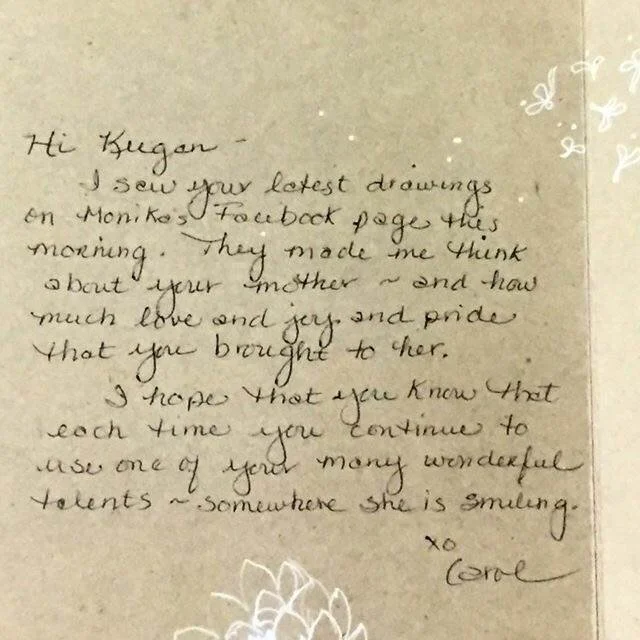 Hi Keegan -
I saw your latest drawings
on Monika's Facebook page this
morning. They made me think
about your mother ~ and how
much love and joy and pride
that you brought to her.
I hope that you know that
each time you continue to
use one of your many wonderful
talents ~ somewhere she is smiling.
xo
Carol